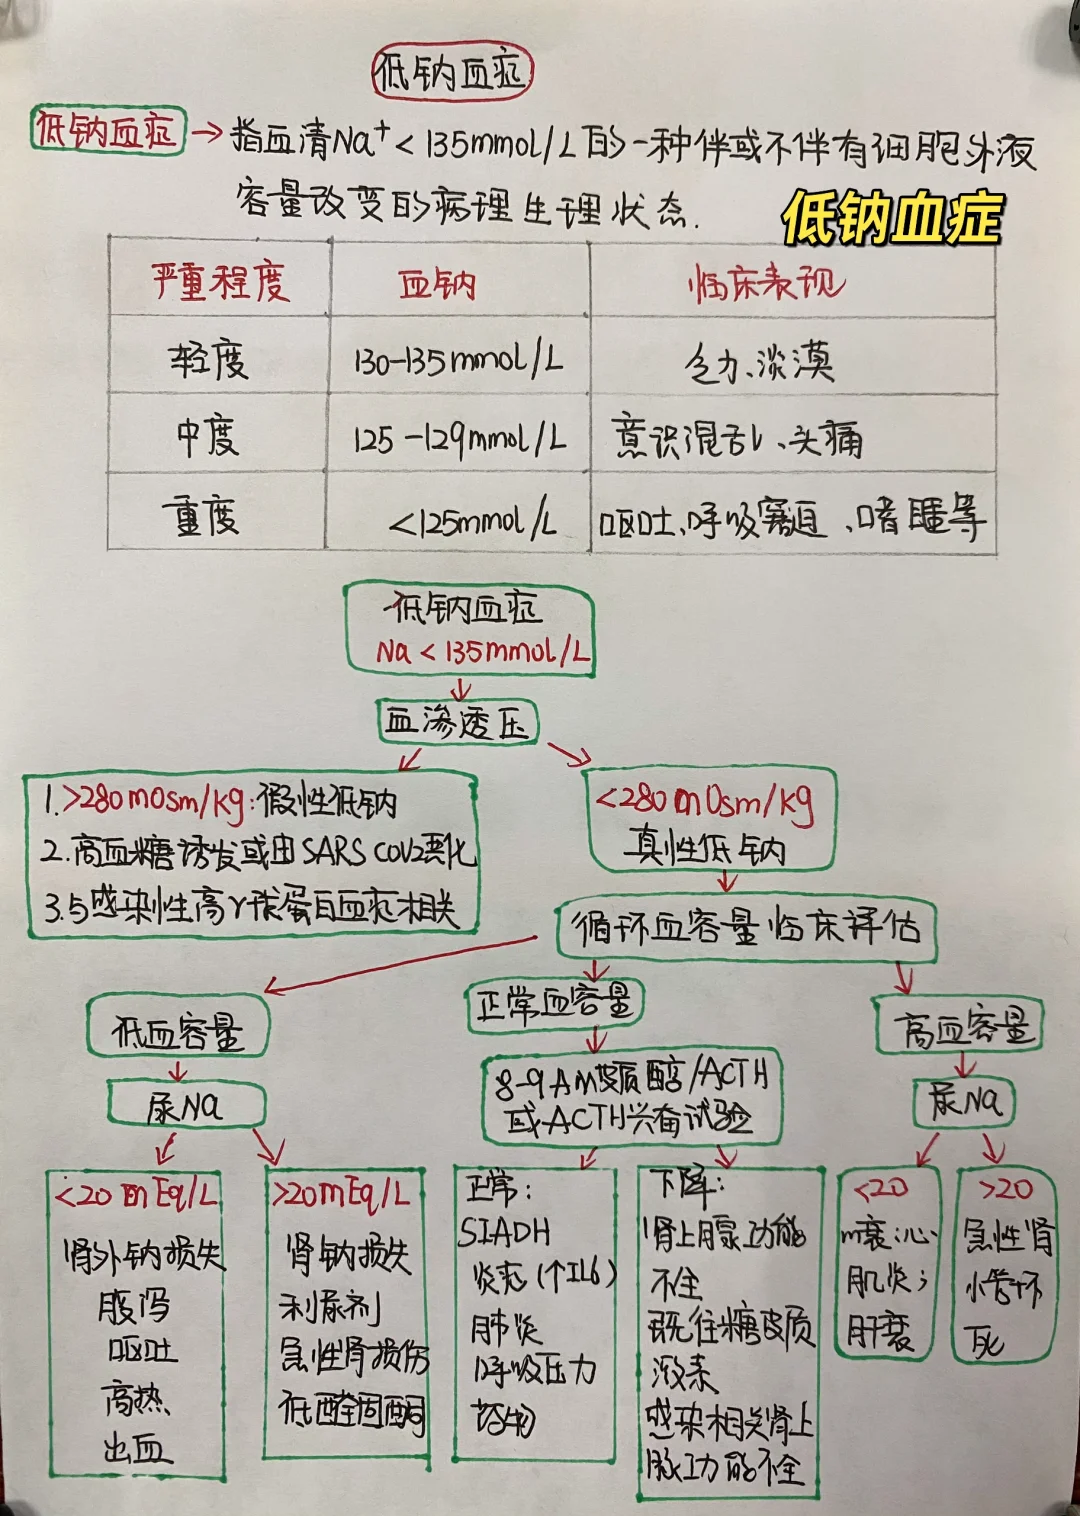 低钠血症
低钠血症 → 指血清Na⁺<135mmol/L的一种伴或不伴有细胞外液
容量改变的病理生理状态.
低钠血症
严重程度 血钠 临床表现
轻度 130-135mmol/L 乏力、淡漠
中度 125-129mmol/L 意识混乱、头痛
重度 <125mmol/L 呕吐、呼吸窘迫、嗜睡等
低钠血症
Na<135mmol/L
血渗透压
1.>280mOsm/kg:假性低钠
2.高血糖诱发或由SARS COV2恶化
3.与感染性高γ球蛋白血症相关
<280mOsm/kg
真性低钠
循环血容量临床评估
低血容量
尿Na
<20mEq/L
肾外钠损失
腹泻
呕吐
高热
出血
>20mEq/L
肾钠损失
利尿剂
急性肾损伤
低醛固酮
正常血容量
8-9AM皮质醇/ACTH
或ACTH兴奋试验
正常:
SIADH
炎症(↑IL6)
肺炎
呼吸压力
药物
下降:
肾上腺功能
不全
既往糖皮质
激素
感染相关肾上
腺功能不全
高血容量
尿Na
<20
衰;心
肌炎;
肝衰
>20
急性肾
小管坏
死